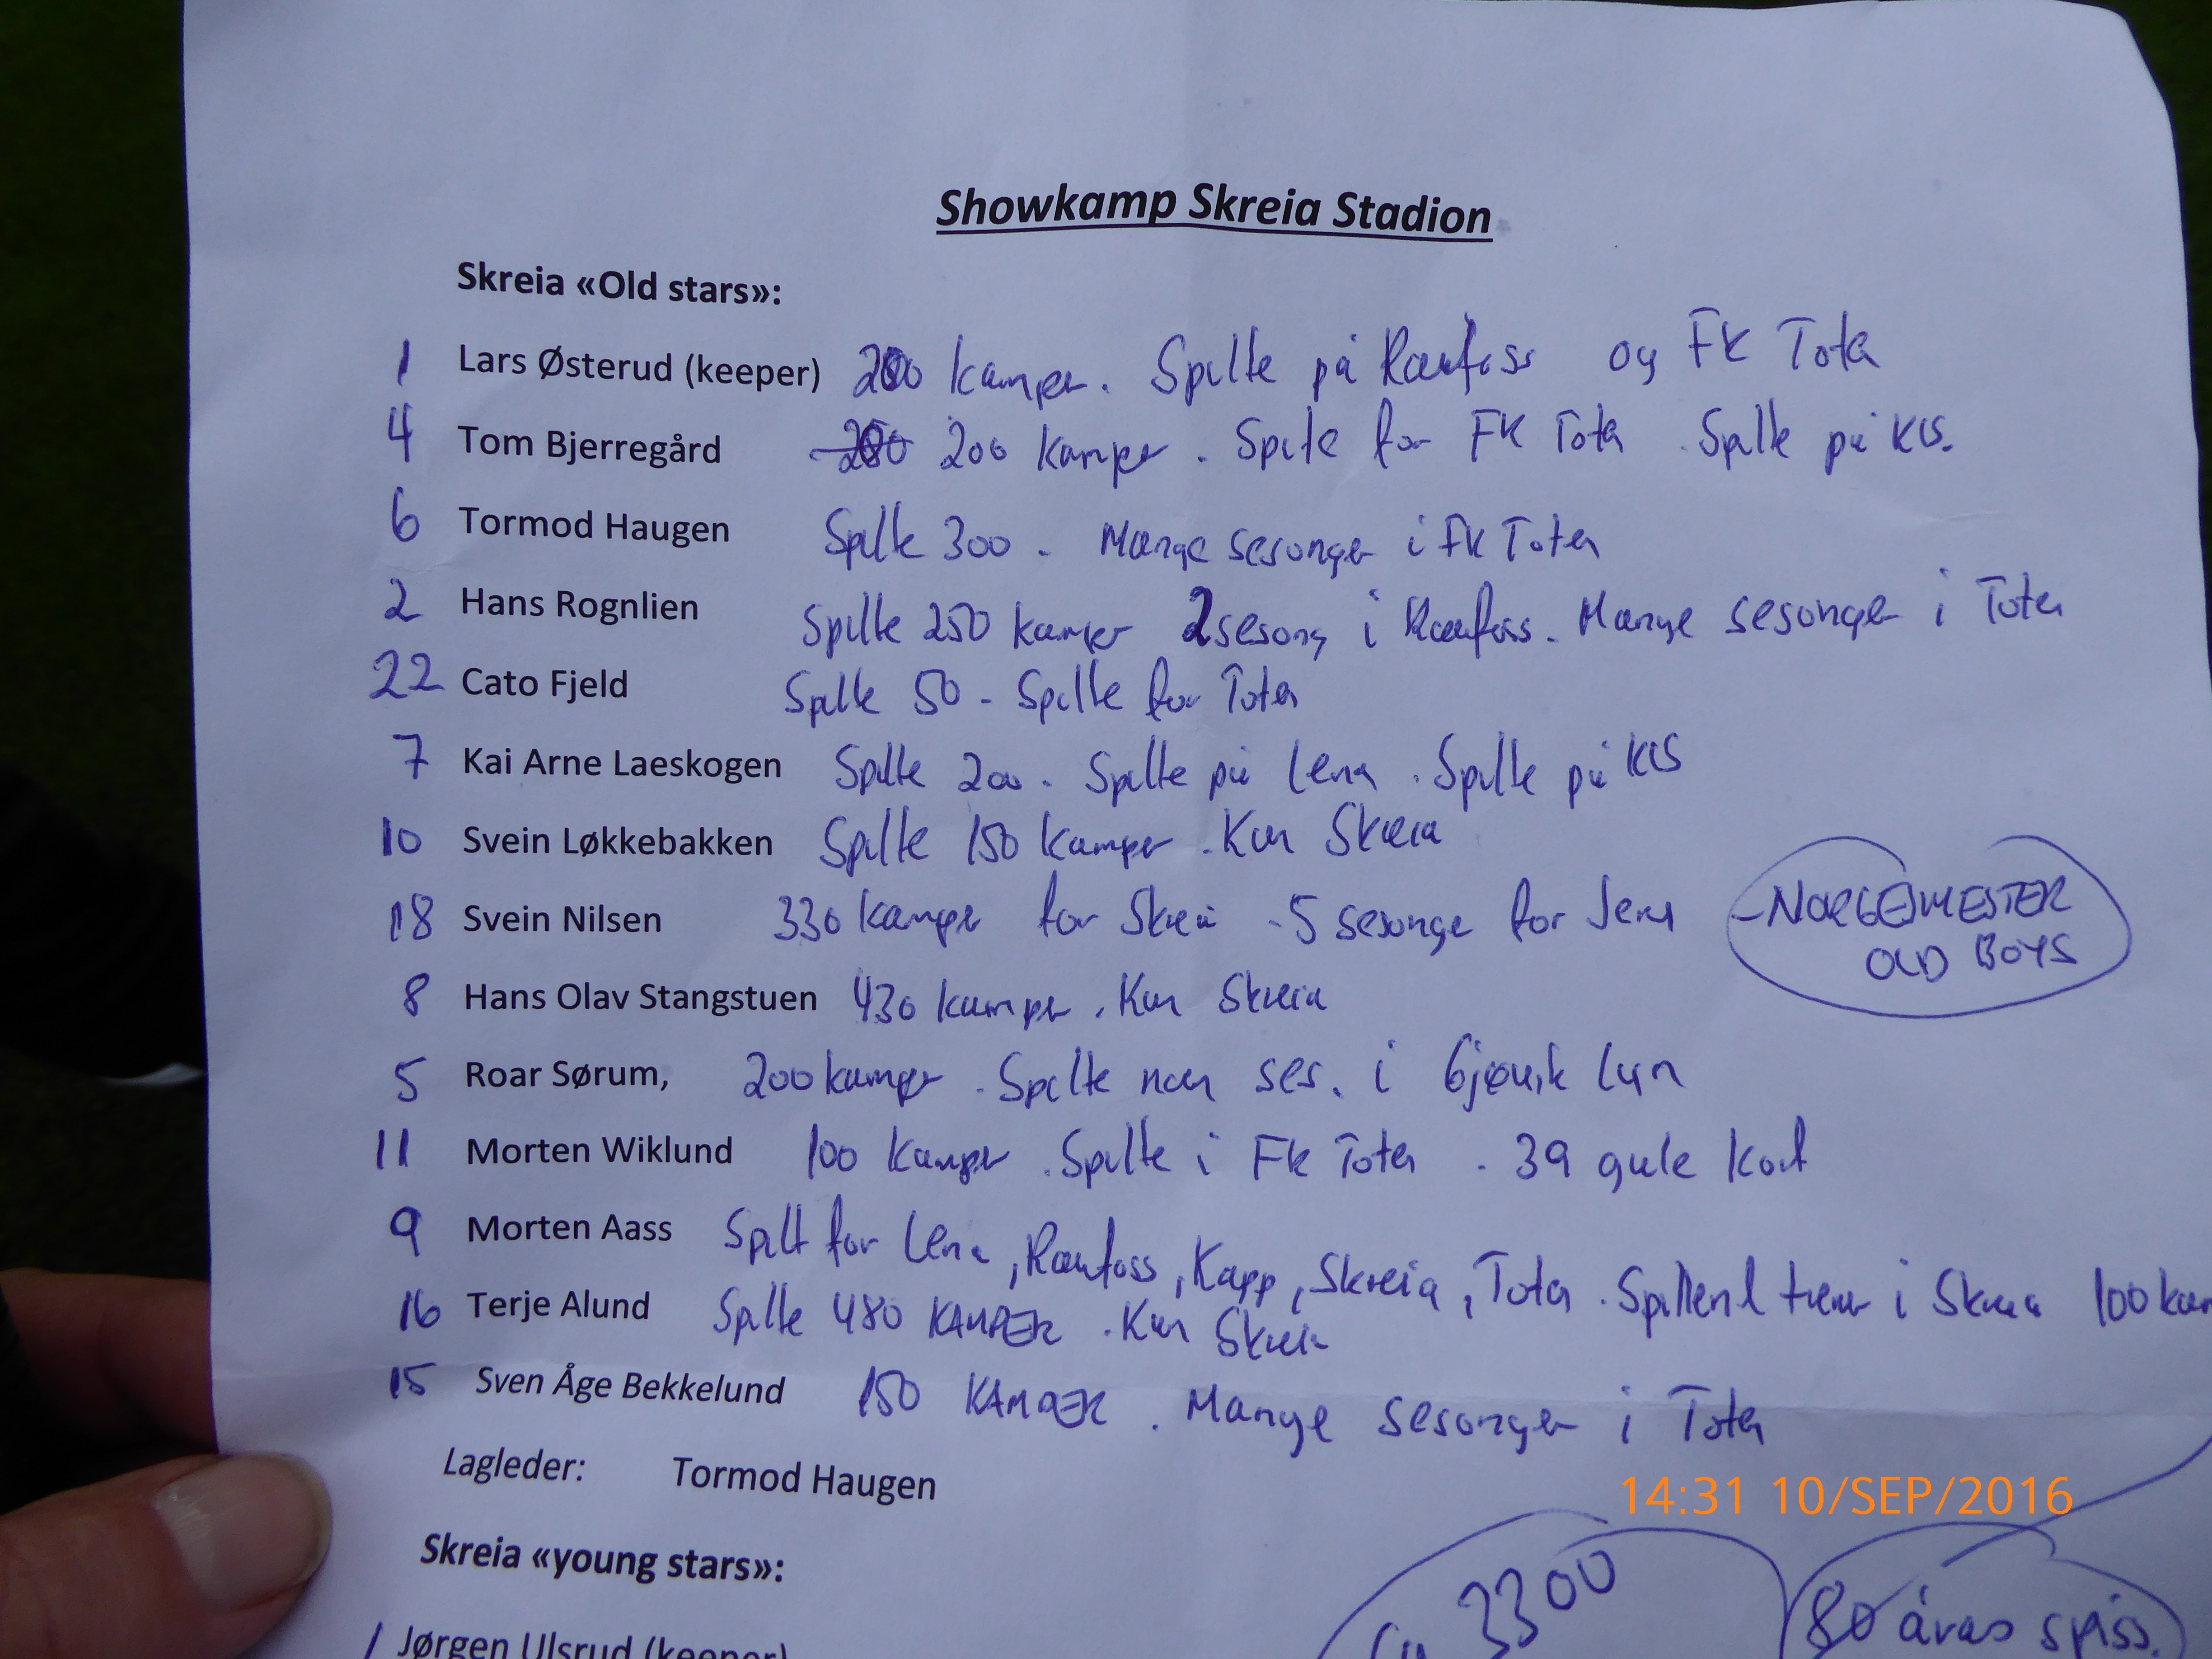 Showkamp Skreia Stadion
Skreia «Old stars»:
1 Lars Østerud (keeper) 200 kamper. Spilte på Raufoss og FK Toten
4 Tom Bjerregård 200 kamper. Spilte for FK Toten. Spilte på KIS.
6 Tormod Haugen Spilte 300 - Mange sesonger i FK Toten
2 Hans Rognlien Spilte 250 kamper 2 sesong i Raufoss. Mange sesonger i Toten
22 Cato Fjeld Spilte 50 - Spilte for Toten
7 Kai Arne Laeskogen Spilte 200 - Spilte på Lena. Spilte på KIS
10 Svein Løkkebakken Spilte 150 kamper. Kun Skreia
18 Svein Nilsen 330 kamper for Skreia -5 sesonge for -NORGESMESTER
OLD BOYS
8 Hans Olav Stangstuen 430 kamper. Kun Skreia
5 Roar Sørum, 200 kamper. Spilte noen ses. i Gjøvik Lyn
11 Morten Wiklund 100 kamper. Spilte i FK Toten. 39 gule kort
9 Morten Aass Spilt for Lena, Raufoss, Kapp, Skreia, Toten. i Skreia 100 kam
16 Terje Alund Spilte 480 KAMPER. Kun Skreia
15 Sven Åge Bekkelund 150 KAMPER. Mange sesonger i Toten
Lagleder: Tormod Haugen
14:31 10/SEP/2016
Skreia «young stars»:
3300
80 åras spiss.
1 Jørgen Ulsrud (keeper)